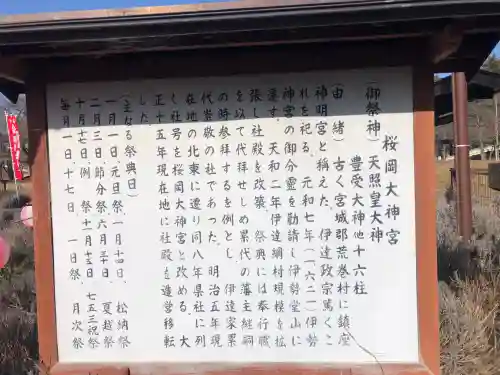 桜岡大神宮
(御祭神)天照皇大神
豊受大神他十六柱
(由緒)古く宮城郡荒巻村に鎮座
神明宮と称えた、伊達政宗篤くこ
れを祀る、元和七年(一六二一)伊勢
神宮の御分霊を勧請し伊勢堂山に
遷す。天和二年伊達綱村規模を拡
張し社殿を改築、祭典には奉行職
を以て代拝せしめ累代の藩主継嗣
の時参拝するを例とし、伊達家累
代崇敬の社であった。明治五年現
在地の北東に遷り同八年県社に列
く社号を桜岡大神宮と改める。大
正十五年現在地に社殿を造営移転
した。
(主なる祭典日)
一月一日、元旦祭 一月十四日、松納祭
二月三日、節分祭 六月三十日、夏越祭
十月十七日、例祭 十一月十五日、七五三祝祭
毎月一日十七日、一日祭、月次祭